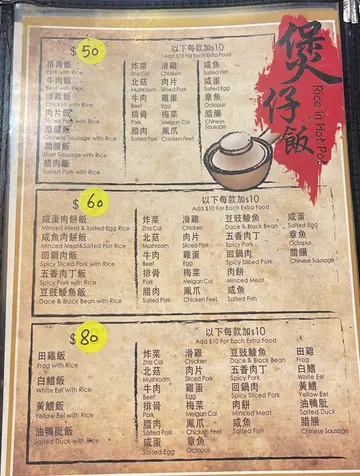 煲仔飯
Rice in Hot Pot
$50
排骨飯
Pork with Rice
牛肉飯
Beef with Rice
滑雞飯
Chicken with Rice
肉片飯
Sliced Pork with Rice
臘腸飯
Chinese Sausage with Rice
潤腸飯
Liver Sausage with Rice
臘肉飯
Salted Pork with Rice
以下每款加$10
Add $10 For Each Extra Food
炸菜 滑雞 咸魚
Zha Cai Chicken Salted Fish
北菇 肉片 咸蛋
Mushroom Sliced Pork Salted Egg
牛肉 雞蛋 章魚
Beef Egg Octopus
排骨 梅菜 臘腸
Pork Meigan Cai Chinese Sausage
臘肉 鳳爪
Salted Pork Chicken Feet
$60
咸蛋肉餅飯
Minced Meat & Salted Egg Rice
咸魚肉餅飯
Minced Meat&Salted Fish Rice
回鍋肉飯
Spicy Sliced Pork with Rice
五香肉丁飯
Spicy Pork with Rice
豆豉鯪魚飯
Dace & Black Bean with Rice
以下每款加$10
Add $10 For Each Extra Food
炸菜 滑雞 豆豉鯪魚 咸蛋
Zha Cai Chicken Dace & Black Bean Salted Egg
北菇 肉片 五香肉丁 章魚
Mushroom Sliced Pork Spicy Pork Octopus
牛肉 雞蛋 回鍋肉 臘腸
Beef Egg Spicy Sliced Pork Chinese Sausage
排骨 梅菜 肉餅
Pork Meigan Cai Minced Meat
臘肉 鳳爪 咸魚
Salted Pork Chicken Feet Salted Fish
$80
田雞飯
Frog with Rice
白鱔飯
White Eel with Rice
黃鱔飯
Yellow Eel with Rice
油鴨髀飯
Salted Duck with Rice
以下每款加$10
Add $10 For Each Extra Food
炸菜 滑雞 豆豉鯪魚 田雞
Zha Cai Chicken Dace & Black Bean Frog
北菇 肉片 五香肉丁 白鱔
Mushroom Sliced Pork Spicy Pork White Eel
牛肉 雞蛋 回鍋肉 黃鱔
Beef Egg Spicy Sliced Pork Yellow Eel
排骨 梅菜 肉餅 油鴨髀
Pork Meigan Cai Minced Meat Salted Duck
臘肉 鳳爪 咸魚 臘腸
Salted Pork Chicken Feet Salted Fish Chinese Sausage
咸蛋 章魚
Salted Egg Octopus